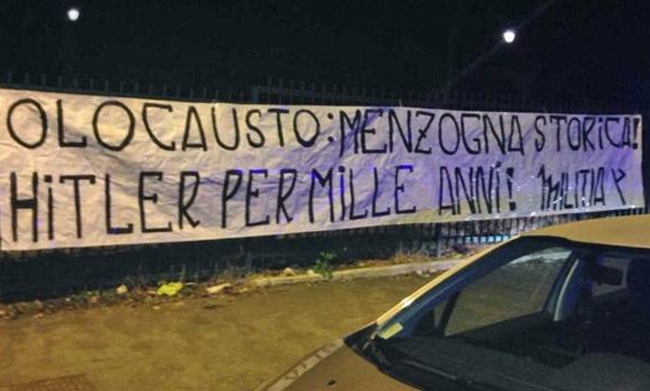 OLOCAUSTO: MENZOGNA STORICA!
HITLER PER MILLE ANNI! MILITIA